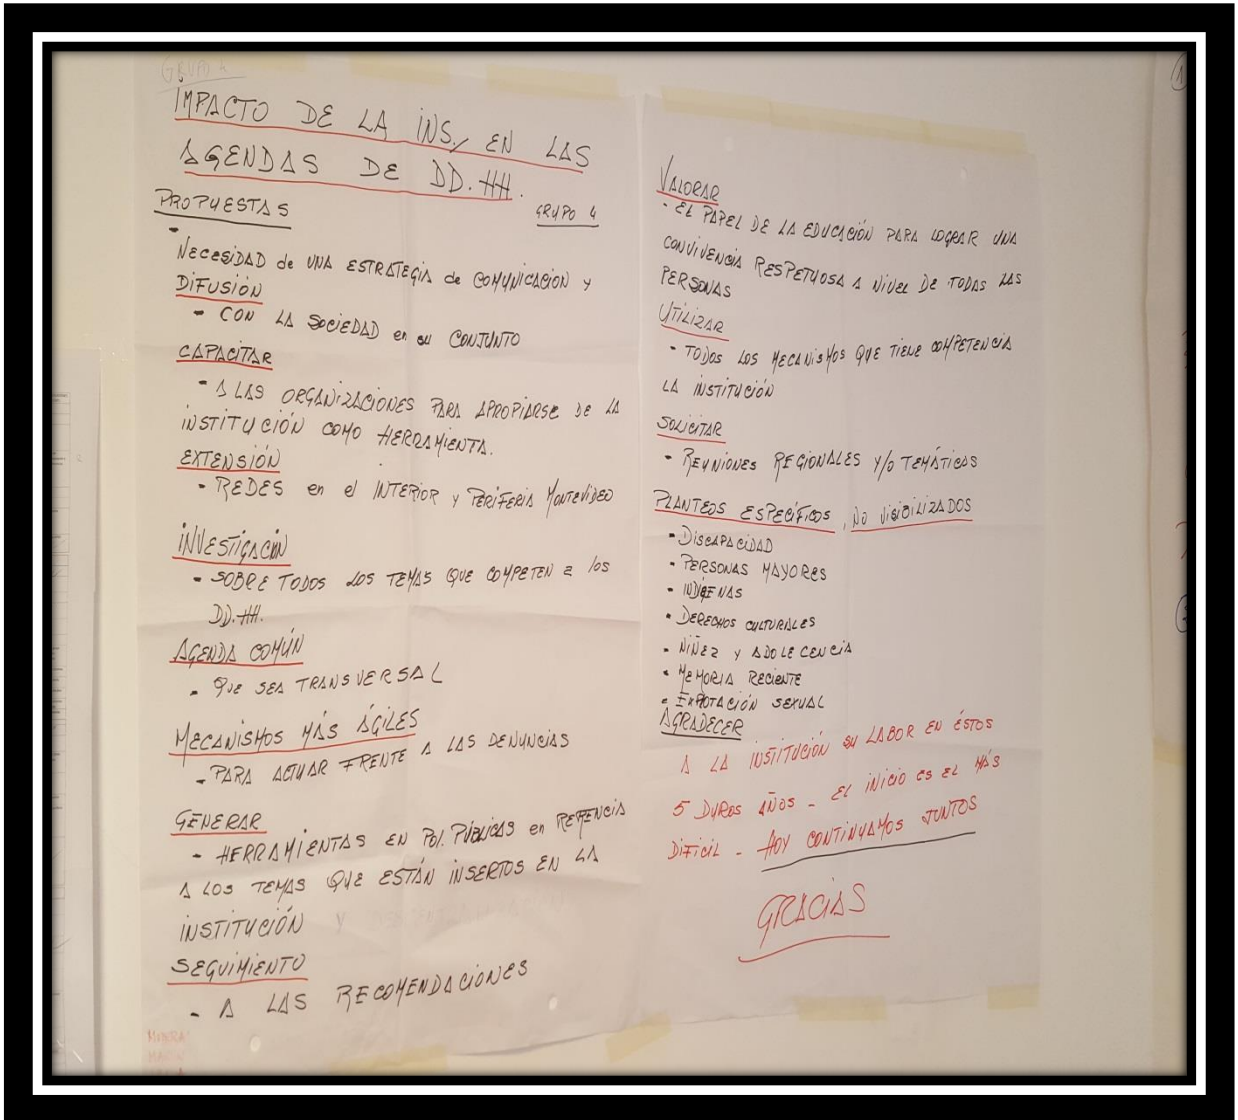 GRUPO 4
IMPACTO DE LA INS/ EN LAS
AGENDAS DE DD.HH.
GRUPO 4
PROPUESTAS
-
NECESIDAD de UNA ESTRATEGIA de COMUNICACIÓN y
DIFUSIÓN
- CON LA SOCIEDAD en su CONJUNTO
CAPACITAR
- A LAS ORGANIZACIONES PARA APROPIARSE DE LA
INSTITUCIÓN COMO HERRAMIENTA.
EXTENSIÓN
- REDES en el INTERIOR y PERIFERIA MONTEVIDEO
INVESTIGACIÓN
- SOBRE TODOS LOS TEMAS QUE COMPETEN a los
DD.HH.
AGENDA COMÚN
- QUE SEA TRANSVERSAL
MECANISMOS MÁS ÁGILES
- PARA ACTUAR FRENTE A LAS DENUNCIAS
GENERAR
- HERRAMIENTAS EN POL. PÚBLICAS en REFENCIA
A LOS TEMAS QUE ESTÁN INSERTOS EN LA
INSTITUCIÓN y
SEGUIMIENTO
- A LAS RECOMENDACIONES
VALORAR
- EL PAPEL DE LA EDUCACIÓN PARA LOGRAR UNA
CONVIVENCIA RESPETUOSA A NIVEL DE TODAS LAS
PERSONAS
UTILIZAR
- TODOS LOS MECANISMOS QUE TIENE COMPETENCIA
LA INSTITUCIÓN
SOLICITAR
- REUNIONES REGIONALES Y/O TEMÁTICAS
PLANTEOS ESPECÍFICOS, NO VISIBILIZADOS
- DISCAPACIDAD
- PERSONAS MAYORES
- INDÍGENAS
- DERECHOS CULTURALES
- NIÑEZ Y ADOLECENCIA
- MEMORIA RECIENTE
- EXPLOTACIÓN SEXUAL
AGRADECER
A LA INSTITUCIÓN SU LABOR EN ÉSTOS
5 DUROS AÑOS - EL INICIO ES EL MÁS
DIFICIL - HOY CONTINUAMOS JUNTOS
GRACIAS